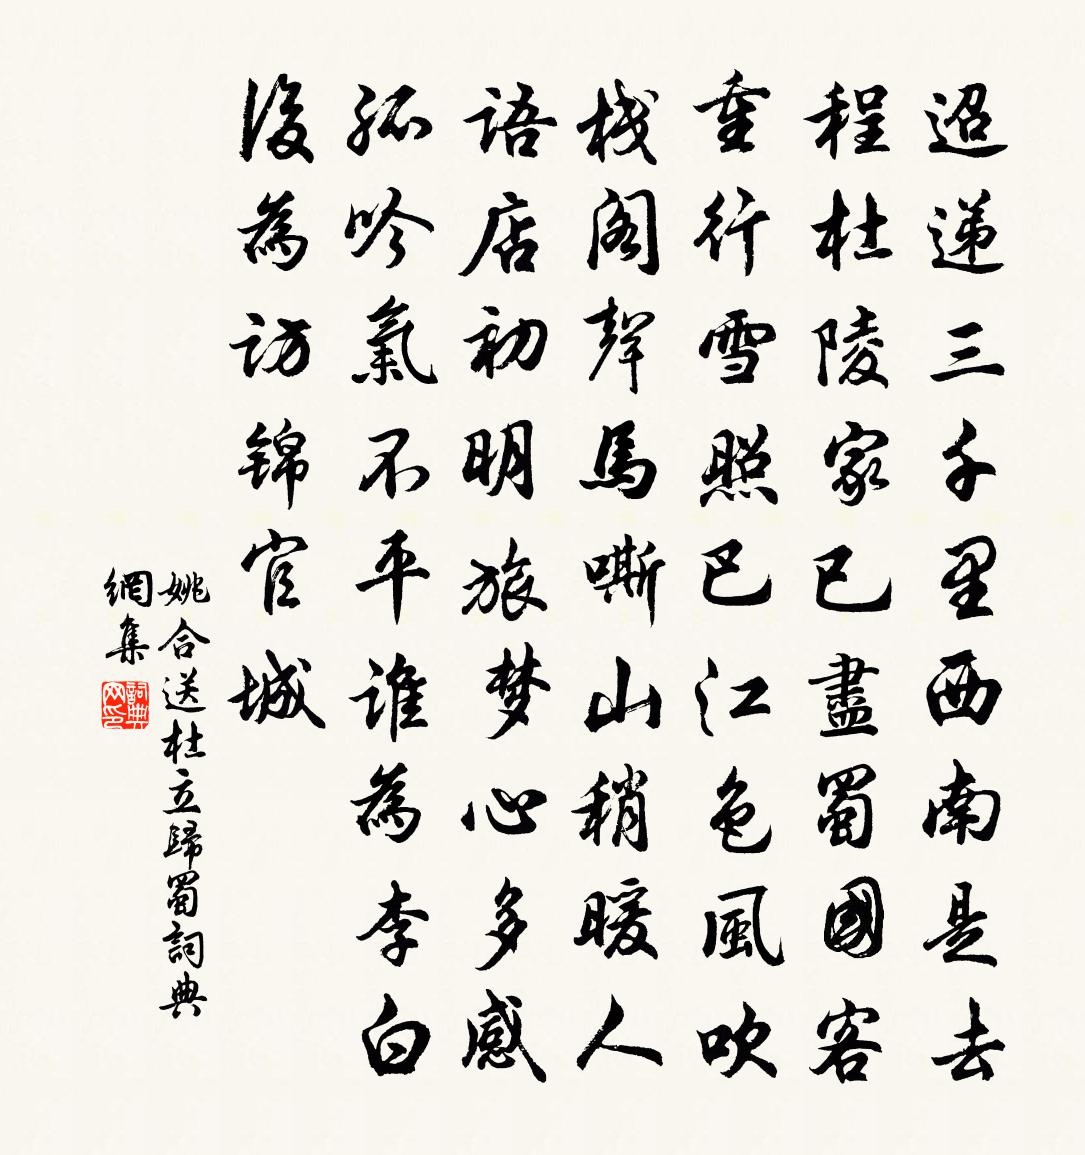 迢递三千里西南是去
程杜陵家已盡蜀國客
重行雪照巴江色風吹
栈阁聲馬嘶山稍暖人
語店初明旅梦心多感
孤吟氣不平谁為李白
後為访锦官城
姚合送杜立歸蜀詞典
網集
詞典网印